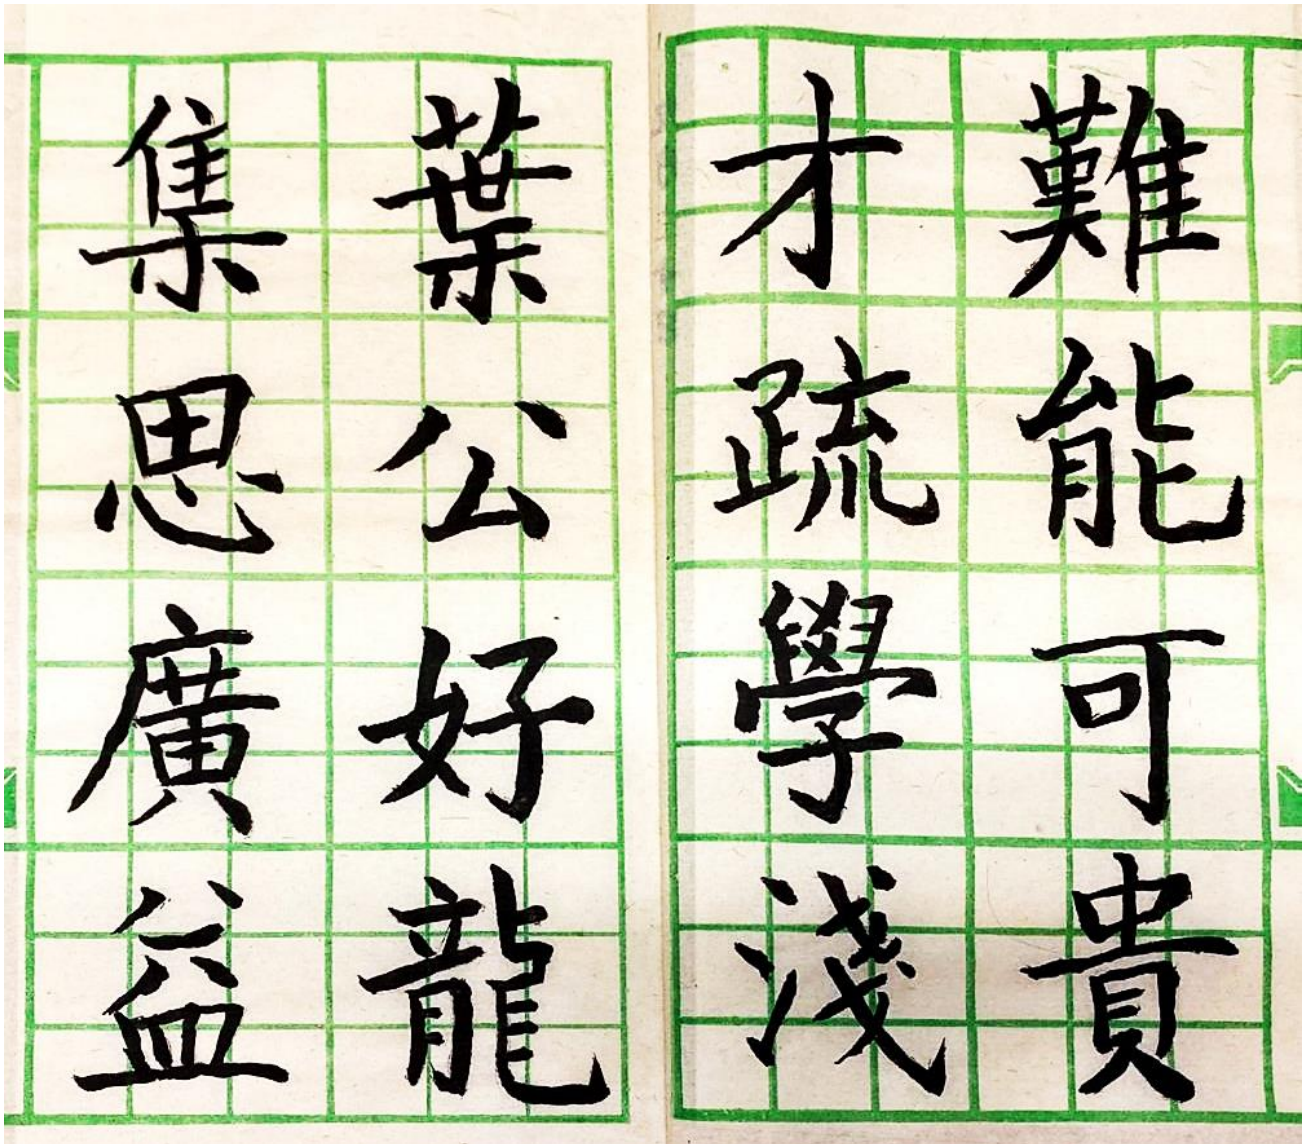 難能可貴
才疏學淺
葉公好龍
集思廣益